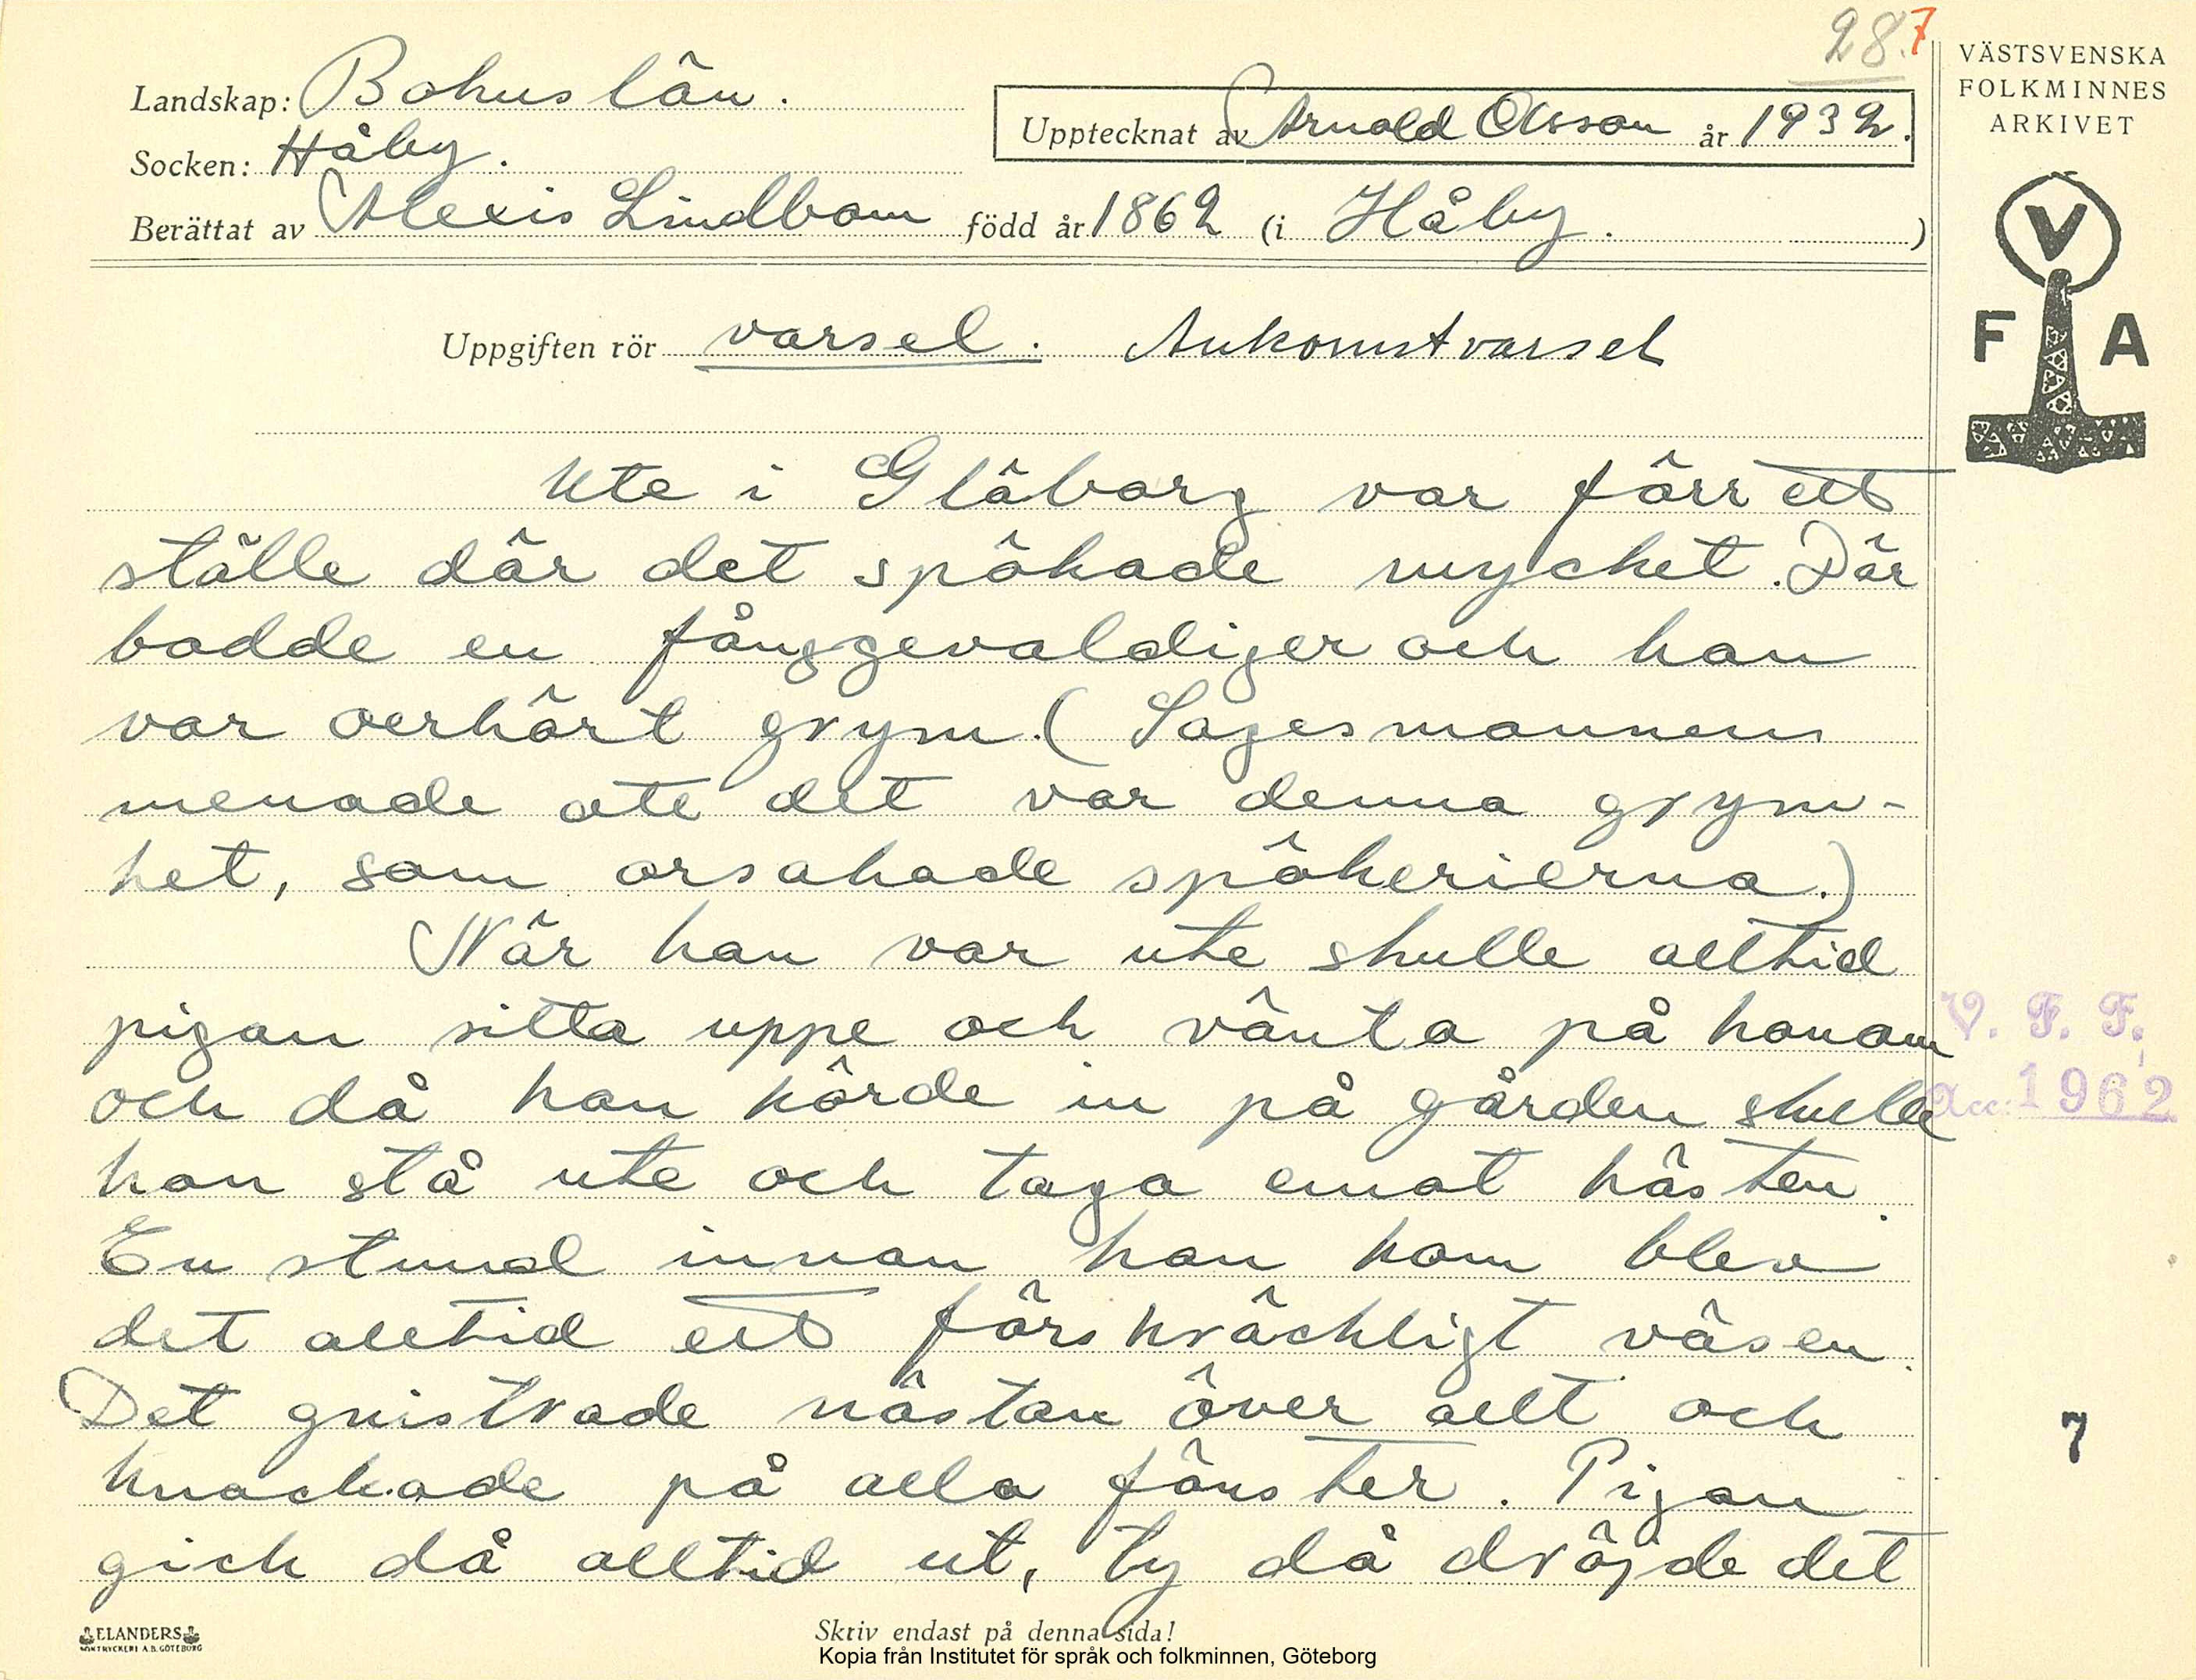 28.7
VÄSTSVENSKA
FOLKMINNES
ARKIVET
Landskap: Bohuslän.
Upptecknat av Arnold Olsson år 1932.
Socken: Håby.
Berättat av Alexis Lindbom född år 1862 (i Håby. )
V
F A
Uppgiften rör varsel. Ankomstvarsel
Ute i Gläborg var förr ett
ställe där det spökade mycket. Där
bodde en fånggevaldiger och han
var oerhört grym. (Sagesmannen
menade att det var denna grym-
het, som orsakade spökerierna.)
När han var ute skulle alltid
pigan sitta uppe och vänta på honom
och då han körde in på gården skulle
hon stå ute och taga emot hästen.
En stund innan han kom blev
det alltid ett förskräckligt väsen.
Det gnistrade nästan över allt och
knackade på alla fönster. Pigan
gick då alltid ut, ty då dröjde det
V. F. F.
Acc. 1962
7
ELANDERS
BOKTRYCKERI A.B. GÖTEBORG
Skriv endast på denna sida!
Kopia från Institutet för språk och folkminnen, Göteborg